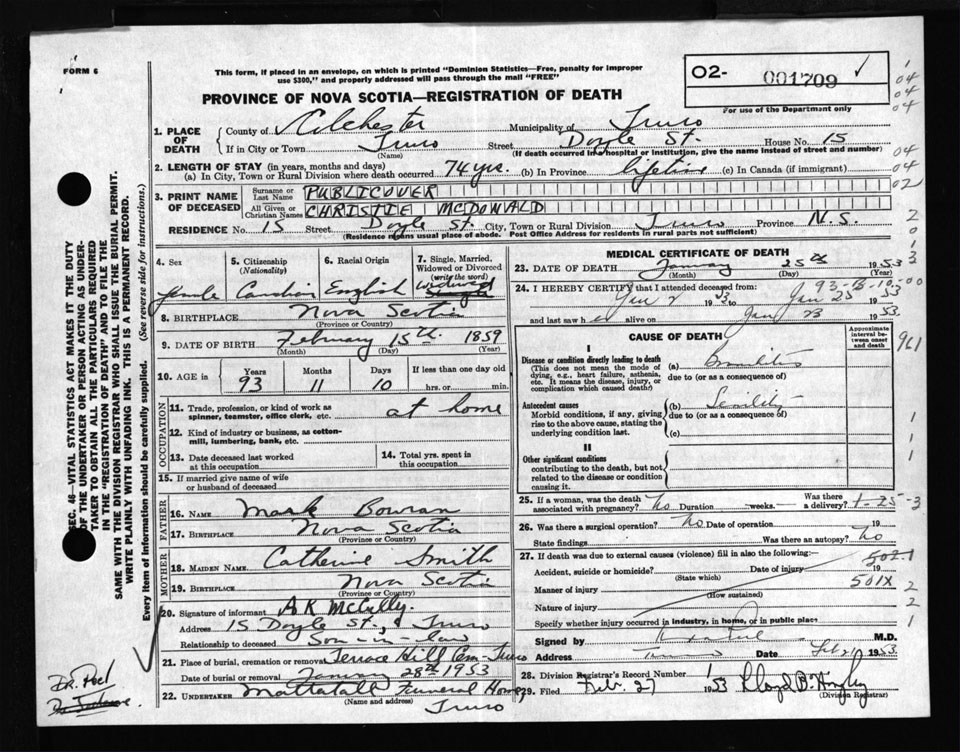 FORM 6
This form, if placed in an envelope, on which is printed "Dominion Statistics—Free, penalty for improper
use $300," and properly addressed will pass through the mail "FREE"
02- 001709 ✓
For use of the Department only
PROVINCE OF NOVA SCOTIA—REGISTRATION OF DEATH
1. PLACE OF DEATH { County of Colchester Municipality of Truro
If in City or Town Truro (Name) Street Doyle St. House No. 15
(If death occurred in a hospital or institution, give the name instead of street and number)
2. LENGTH OF STAY (in years, months and days)
(a) In City, Town or Rural Division where death occurred 74 yrs. (b) In Province lifetime (c) In Canada (if immigrant)
3. PRINT NAME OF DECEASED { Surname or Last Name PUBLICOVER
All Given or Christian Names CHRISTIE McDONALD
RESIDENCE No. 15 Street Doyle St. City, Town or Rural Division Truro Province N.S.
(Residence means usual place of abode. Post Office Address for residents in rural parts not sufficient)
4. Sex
female
5. Citizenship (Nationality)
Canadian
6. Racial Origin
English
7. Single, Married, Widowed or Divorced (write the word)
Widowed
8. BIRTHPLACE Nova Scotia
(Province or Country)
9. DATE OF BIRTH February 15th 1859
(Month) (Day) (Year)
10. AGE in { Years 93 Months 11 Days 10 If less than one day old
hrs. or min.
OCCUPATION
11. Trade, profession, or kind of work as spinner, teamster, office clerk, etc. at home
12. Kind of industry or business, as cotton-mill, lumbering, bank, etc.
13. Date deceased last worked at this occupation
14. Total yrs. spent in this occupation
15. If married give name of wife or husband of deceased
FATHER
16. NAME Mark Bowran
17. BIRTHPLACE Nova Scotia
(Province or Country)
MOTHER
18. MAIDEN NAME Catherine Smith
19. BIRTHPLACE Nova Scotia
(Province or Country)
20. Signature of informant A K McCully
Address 15 Doyle St., Truro
Relationship to deceased Son-in-law
21. Place of burial, cremation or removal Terrace Hill Cem-Truro
Date of burial or removal January 28th 1953
22. UNDERTAKER Mattatall Funeral Home
(Name and address) Truro
MEDICAL CERTIFICATE OF DEATH
23. DATE OF DEATH January 25th 1953
(Month) (Day) (Year)
24. I HEREBY CERTIFY that I attended deceased from
Jan 2 1953 to Jan 25 1953
and last saw her alive on Jan 23 1953
CAUSE OF DEATH
Approximate interval between onset and death
I
Disease or condition directly leading to death (a) Bronchitis
(This does not mean the mode of dying, e.g., heart failure, asthenia, etc. It means the disease, injury, or complication which caused death)
due to (or as a consequence of)
Antecedent causes (b) Senility
Morbid conditions, if any, giving rise to the above cause, stating the underlying condition last.
due to (or as a consequence of)
(c)
II
Other significant conditions
contributing to the death, but not related to the disease or condition causing it.
25. If a woman, was the death associated with pregnancy? No Duration weeks. Was there a delivery?
1-25-3
26. Was there a surgical operation? No Date of operation 19
State findings Was there an autopsy? No
27. If death was due to external causes (violence) fill in also the following:-
Accident, suicide or homicide? (State which) Date of injury 19
502.1
501X
Manner of injury (How sustained)
Nature of injury
Specify whether injury occurred in industry, in home, or in public place
Signed by M.D.
Address Truro Date Feb 2 1953
28. Division Registrar's Record Number 1
29. Filed Feb. 27 1953 Lloyd B.
(Division Registrar)
SEC. 46—VITAL STATISTICS ACT MAKES IT THE DUTY
OF THE UNDERTAKER OR PERSON ACTING AS UNDER-
TAKER TO OBTAIN ALL THE PARTICULARS REQUIRED
IN THE "REGISTRATION OF DEATH" AND TO FILE THE
SAME WITH THE DIVISION REGISTRAR WHO SHALL ISSUE THE BURIAL PERMIT.
WRITE PLAINLY WITH UNFADING INK. THIS IS A PERMANENT RECORD.
Every Item of information should be carefully supplied. (See reverse side for instructions.)